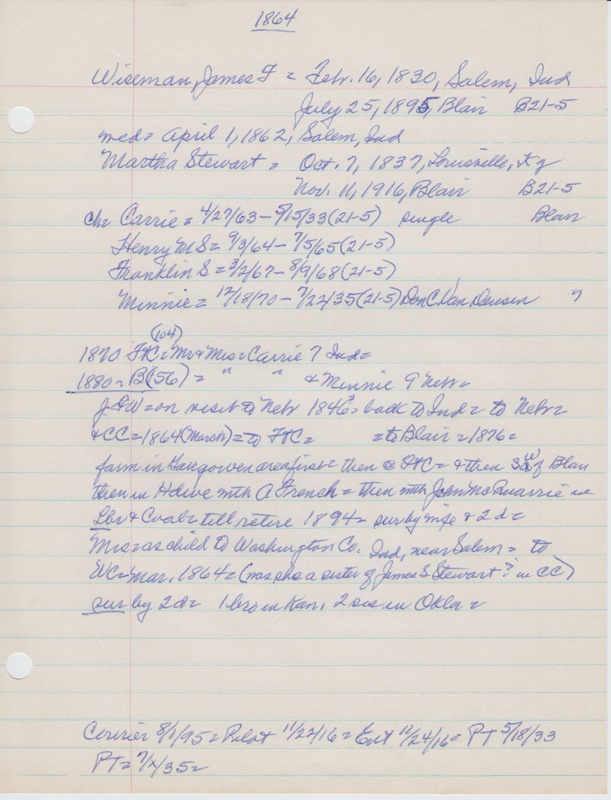 1864
Wiseman, James F = Febr. 16, 1830, Salem, Ind
July 25, 1895, Blair B21-5
med = April 1, 1862, Salem, Ind
Martha Stewart = Oct. 7, 1837, Louisville, Ky
Nov. 11, 1916, Blair B21-5
ch = Carrie = 4/27/63 - 5/15/33 (21-5) single Blair
Henry M S = 9/3/64 - 7/5/65 (21-5)
Franklin S = 3/2/67 - 8/9/68 (21-5)
Minnie = 12/18/70 - 7/22/35 (21-5) Don C. Van Deusen "
(104)
1870 FtC = Mr & Mrs = Carrie 7 Ind =
1880 = B(56) = " " & Minnie 9 Nebr =
J.F.W = on visit to Nebr 1846 = back to Ind = to Nebr =
& CC = 1864 (March) = to FtC = = to Blair = 1876 =
farm in area first = then @ FtC = & then 3 W of Blair
then in Hdwe with A French = then with John McQuarrie in
Lbr & Coal = till retire 1894 = sur by wife & 2 d =
Mrs = as child to Washington Co. Ind, near Salem = to
WC = Mar. 1864 = (was she a sister of James S Stewart? in CC)
sur by 2 d = 1 bro in Kan, 2 sis in Okla =
Courier 8/1/95 = Pilot 11/22/16 = Ent 11/24/16 = PT 5/18/33
PT = 7/x/35 =